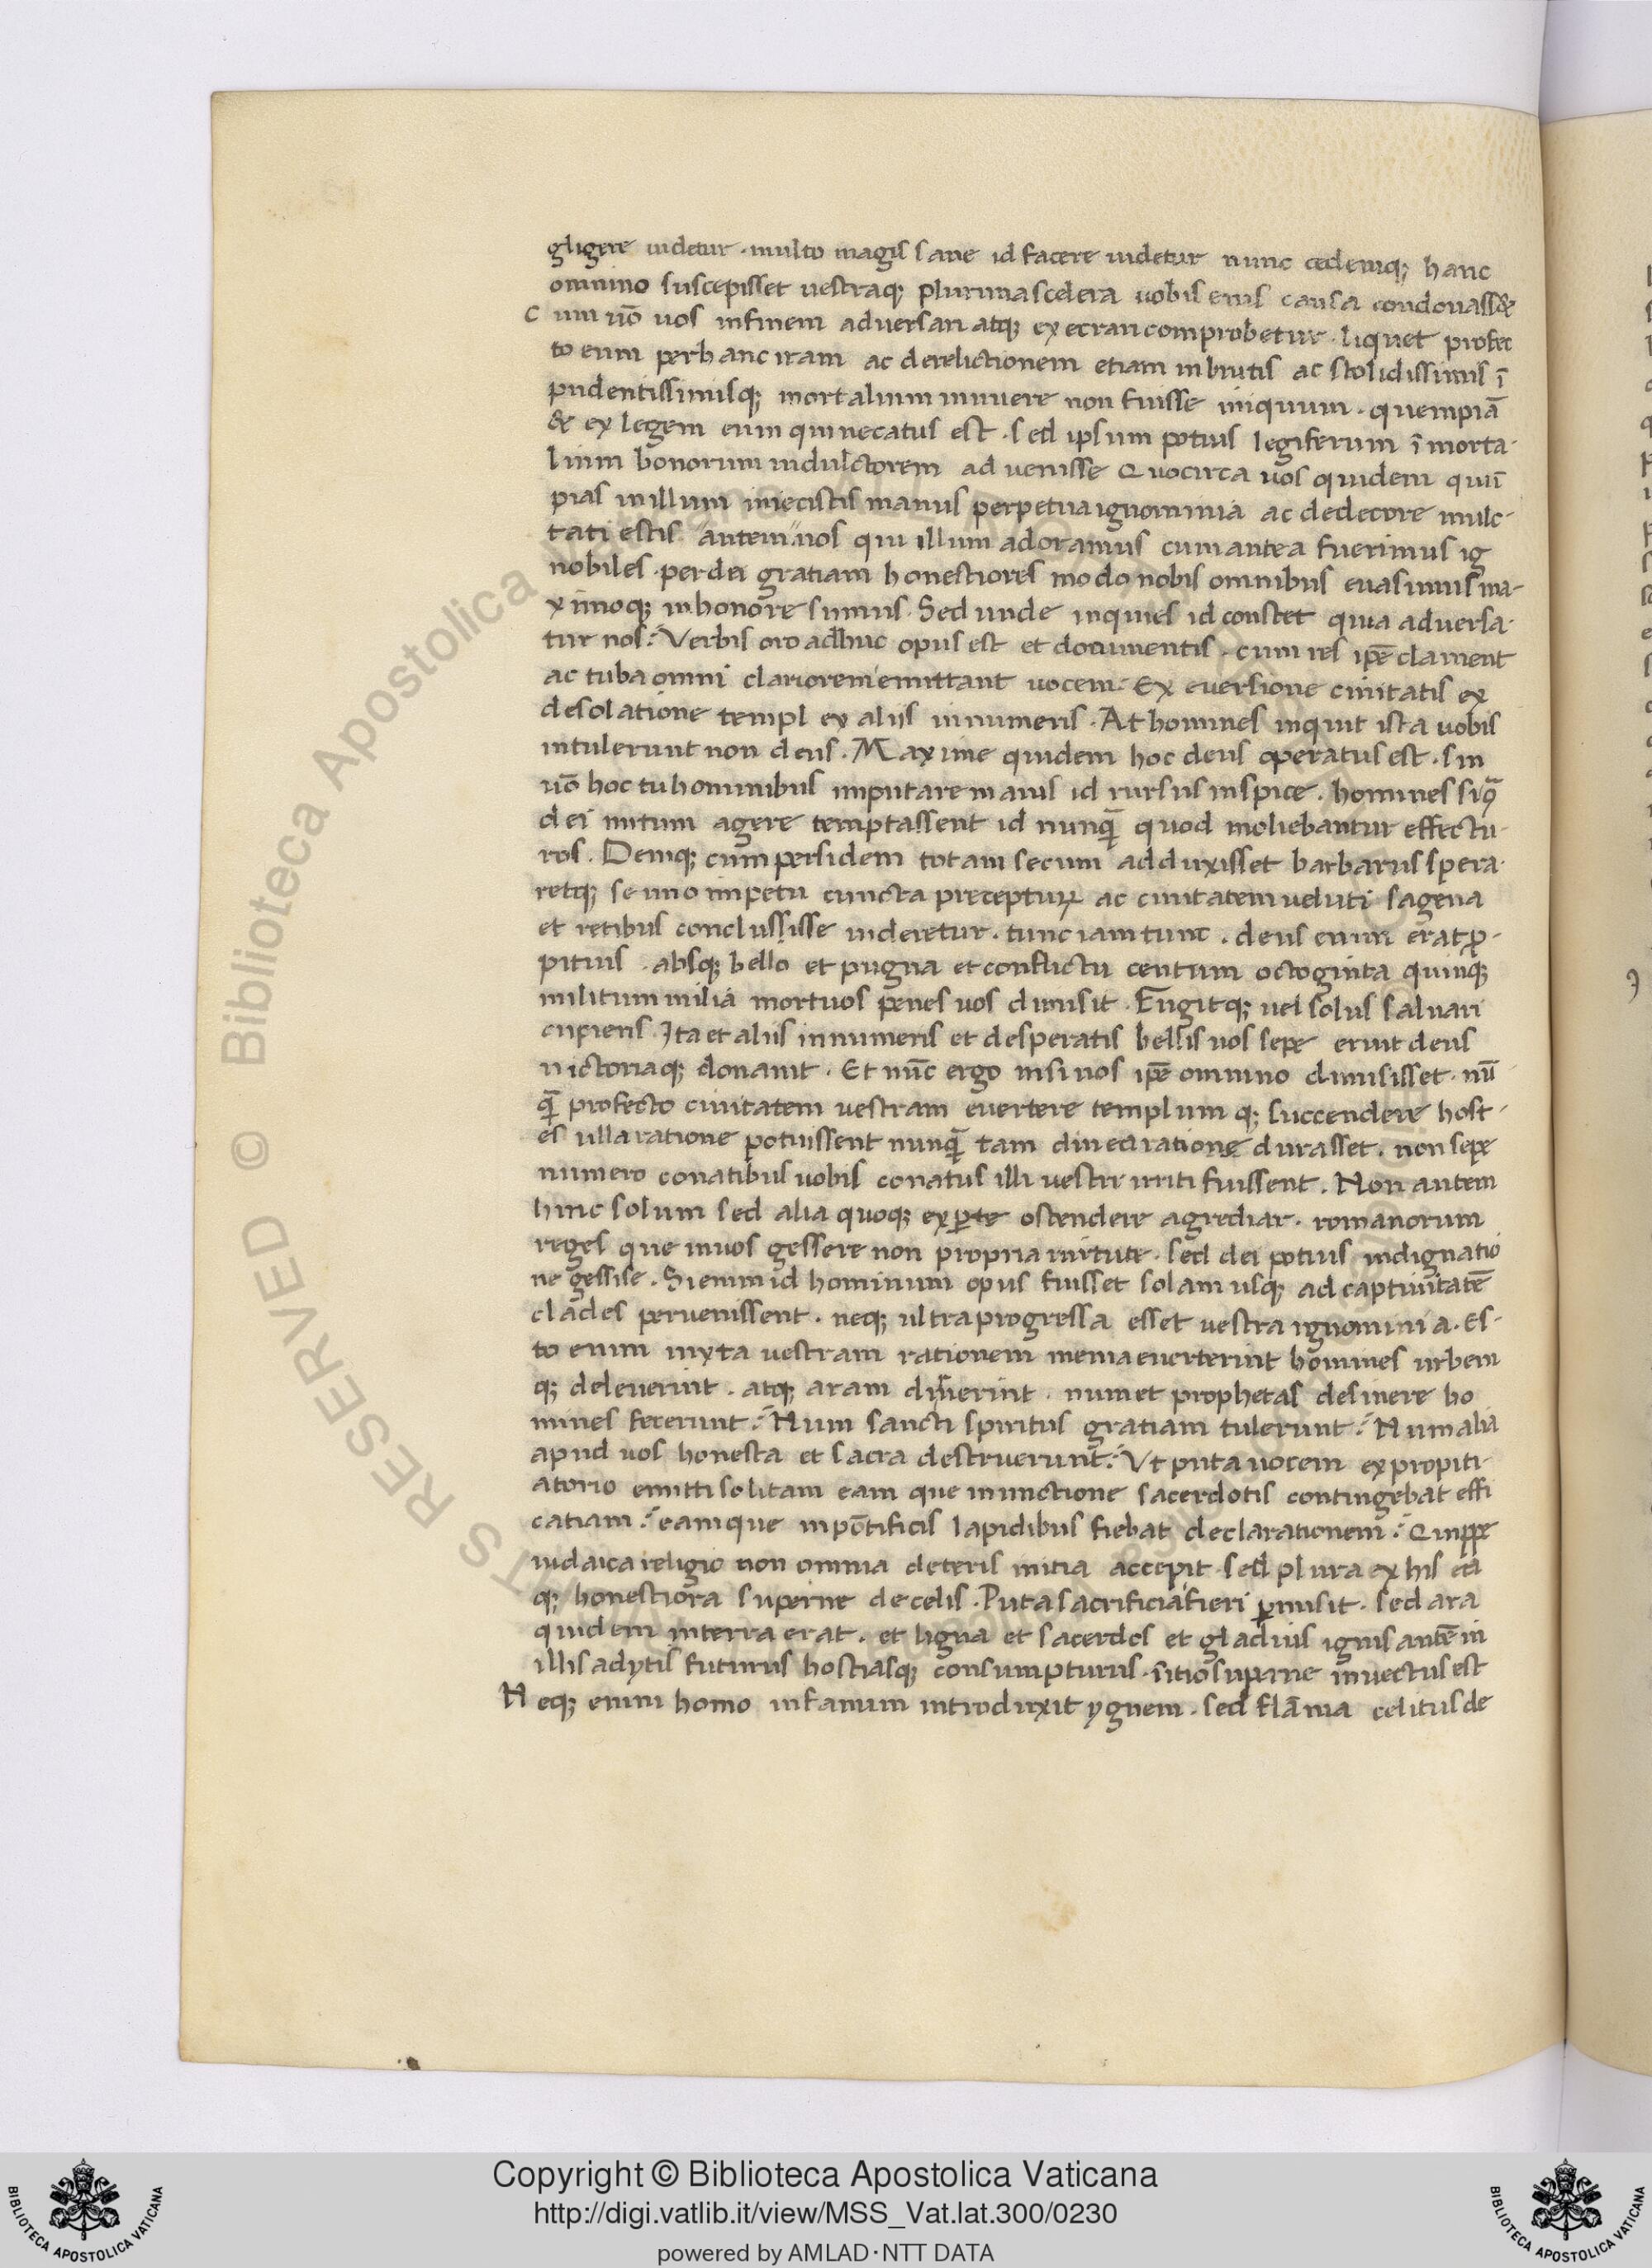 gligere uidetur · multo magis sane id facere uidetur nunc cedemq; hanc
omnino suscepisset uestraq; plurima scelera uobis eius causa condonass&
Cum uō uos in finem aduersari atq; execrari comprobetur · liquet profec
to eum per hanc iram ac derelictionem etiam in brutis ac stolidissimis ī
pudentissimisq; mortalium innuere non fuisse iniquum · quempiā
& ex legem eum qui necatus est · sed ipsum potius legiferum ī morta-
lium bonorum indultorem ad uenisse Quocirca uos quidem qui ī
pias in illum iniecistis manus perpetua ignominia ac dedecore mulc-
tati estis "autem" uos qui illum adoramus cum antea fuerimus ig
nobiles · per dei gratiam honestiores modo nobis omnibus euasimus ma-
ximoq; in honore sumus · Sed unde inquies id constet quia aduersa-
tur nos? Verbis oro adhuc opus est et documentis · cum res ip̄e clament
ac tuba omni clariorem emittant uocem? Ex euersione ciuitatis ex
desolatione templ ex aliis innumeris · At homines inquit ista uobis
intulerunt non deus · Maxime quidem hoc deus operatus est · sin
uō hoc tu hominibus imputare mauis id rursus inspice · homines si
dei nutum agere temptassent id nunq̄ quod moliebantur effectu-
ros · Deniq; cum persidem totam secum adduxisset barbarus spera-
retq; se uno impetu cuncta precepturꝝ ac ciuitatem ueluti sagena
et retibus conclussisse uideretur · tunc iam tunc · deus enim erat ꝓ-
pitius · absq; bello et pugna et conflictu centum octoginta quinq;
militum milia mortuos penes uos dimisit · Fugitq; uel solus saluari
cupiens · Ita et aliis innumeris et desperatis bellis uos sepe eruit deus
uictoriaq; donauit · Et nūc ergo nisi uos ip̄e omnino dimisisset · nū-
q̄ profecto ciuitatem uestram euertere templum q; succendere host-
es ulla ratione potuissent nunq̄ tam diu ea ratione durasset · non sepe
numero conatibus uobis conatus illi uestri irriti fuissent · Non autem
hinc solum sed alia quoq; ex ꝑte ostendere agrediar · romanorum
reges que in uos gessere non propria uirtute · sed dei potius indignatio
ne gessise · Si enim id hominum opus fuisset solam usq; ad captiuitatē
clades peruenissent · neq; ultra progressa esset uestra ignominia · Es-
to enim iuxta uestram rationem menia euerterint homines urbem
q; deleuerint · atq; aram diruerint · num et prophetas desinere ho
mines fecerunt? Num sancti spiritus gratiam tulerunt? Num alia
apud uos honesta et sacra destruerunt? Vt puta uocem ex propiti-
atorio emitti solitam eam que in unctione sacerdotis contingebat effi
catiam? eamque in pōtificis lapidibus fiebat declarationem? Quippe
iudaica religio non omnia de teris initia accepit · sed plura ex his ea
q; honestiora superne de celis · Puta sacrificia fieri ꝑmisit · sed ara
quidem in terra erat · et ligna et sacerdos et gladius ignis autē in
illis adytis futurus hostiasq; consumpturus · superne inuectus est
Neq; enim homo in fanum introduxit ygnem · sed flāma celitus de
© Biblioteca Apostolica
Copyright © Biblioteca Apostolica Vaticana
http://digi.vatlib.it/view/MSS_Vat.lat.300/0230
powered by AMLAD·NTT DATA
BIBLIOTECA APOSTOLICA VATICANA
BIBLIOTECA APOSTOLICA VATICANA